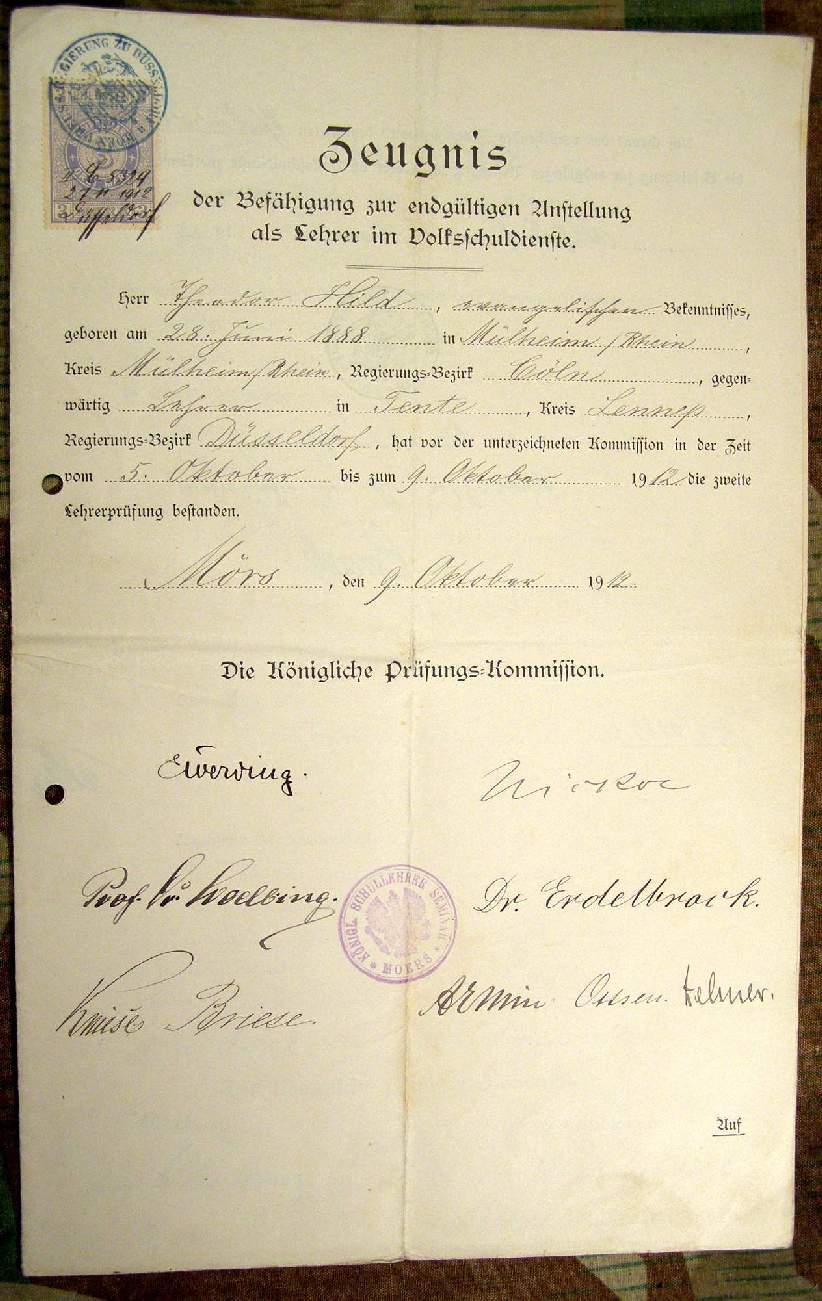 REGIERUNG ZU DÜSSELDORF
Zeugnis
der Befähigung zur endgültigen Anstellung
als Lehrer im Volksschuldienste.
Herr Theodor Hild, evangelischen Bekenntnisses,
geboren am 28. Juni 1888 in Mülheim/Rhein,
Kreis Mülheim/Rhein, Regierungs-Bezirk Cöln, gegen-
wärtig Lehrer in Tente, Kreis Lennep,
Regierungs-Bezirk Düsseldorf, hat vor der unterzeichneten Kommission in der Zeit
vom 5. Oktober bis zum 9. Oktober 1912 die zweite
Lehrerprüfung bestanden.
Mörs, den 9. Oktober 1912.
Die Königliche Prüfungs-Kommission.
Ewerding.
Prof. Dr.
Dr. Erdelbrock.
KÖNIGL. SCHULLEHRER SEMINAR
* MOERS *
Briese.
Armin Ossen.
Auf